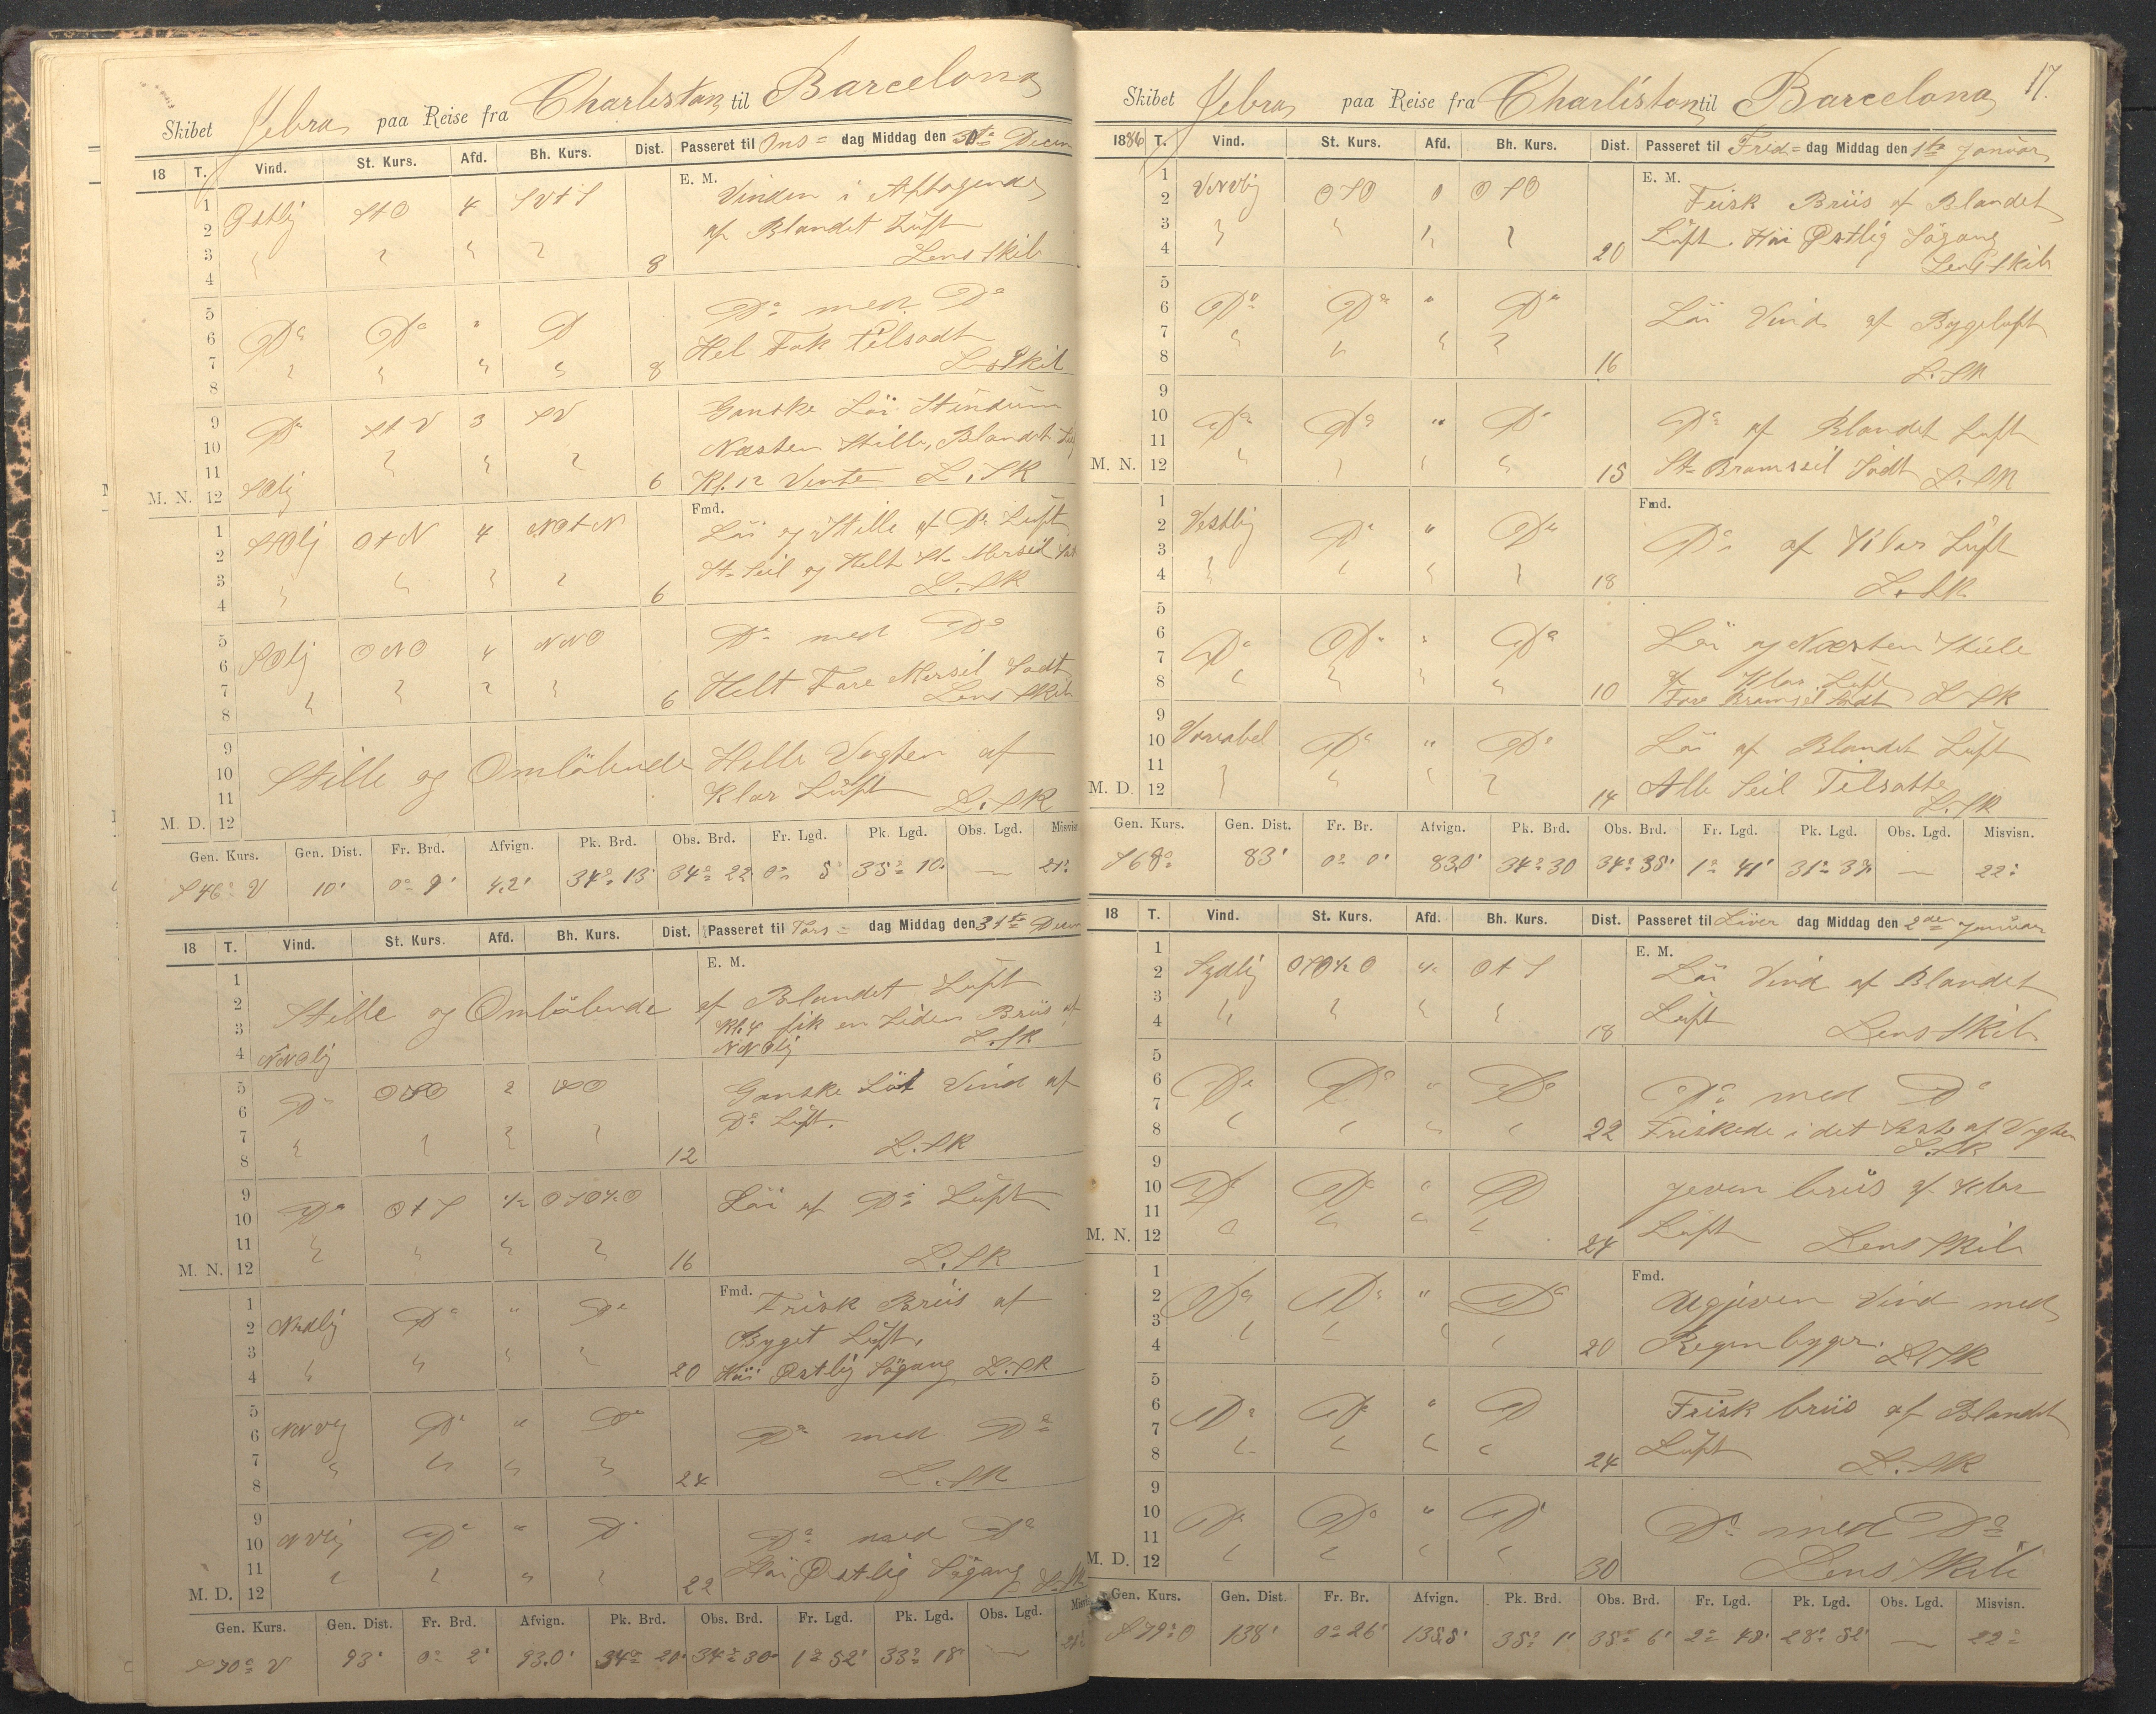 Skibet Jebra paa Reise fra Charlistan til Barcelona
18 T. Vind. St. Kurs. Afd. Bh. Kurs. Dist. Passeret til Ons= dag Middag den 30te Decem
E. M.
1 2 3 4
Ostlig StO 4 SVtS 8
Vinden i Aftagende
af Blandet Luft
Lens Skib
5 6 7 8
Do Do " D 8
Do med Do
Hel Fok tilsadt
L Skib
9 10 11 M. N. 12
Do StV 3 SV 6
SOlig
Ganske Löi Stundum
Næsten Stille, Blandet
Kl. 12 Vente L. SK
Fmd.
1 2 3 4
OtN 4 NOtN 6
Löi og Stille af Do Luft
St= Seil og Helt St= Merseil
L. SK
5 6 7 8
SOlig ONO 4 NNO 6
Do med Do
Helt Fore Mersil Sadt
Lens Skib
9 10 11 M. D. 12
Stille og Omlöbende Helle Vagten af
Klar Luft L. SK
Gen. Kurs. Gen. Dist. Fr. Brd. Afvign. Pk. Brd. Obs. Brd. Fr. Lgd. Pk. Lgd. Obs. Lgd. Misvisn
S46° V 10' 0° 9' 4.2' 34° 13' 34° 22 0° 5' 35° 10' — 21°
18 T. Vind. St. Kurs. Afd. Bh. Kurs. Dist. Passeret til Tors= dag Middag den 31te Decem
E. M.
1 2 3 4
Stille og Omlöbende af Blandet Luft
Kl. 4 fik en Liden Briis af
NNOlig NNOlig L. SK
5 6 7 8
Do OSO 2 SO 12
Ganske Löi Vind af
Do Luft.
L. SK
9 10 11 M. N. 12
Do OtS ½ OSO½O 16
Löi af Do Luft
L. SK
Fmd.
1 2 3 4
Nordlig Do " Do 20
Frisk Briis af
Byget Luft.
Höi Østlig Sögang L. SK
5 6 7 8
NNVlig Do " Do 24
Do med Do
L. SK
9 10 11 M. D. 12
NVlig Do " D 22
Do med Do
Höi Østlig Sögang L. SK
Gen. Kurs. Gen. Dist. Fr. Brd. Afvign. Pk. Brd. Obs. Brd. Fr. Lgd. Pk. Lgd. Obs. Lgd. Misvi
S70° V 93' 0° 2' 93.0' 34° 20' 34° 30' 1° 52' 33° 18' — 21°
17.
Skibet Jebra paa Reise fra Charlistan til Barcelona
1886 T. Vind. St. Kurs. Afd. Bh. Kurs. Dist. Passeret til Fred= dag Middag den 1te Januar
E. M.
1 2 3 4
VNVlig OSO 0 OSO 20
Frisk Briis af Blandet
Luft. Höi Østlig Sögang
Lens Skib
5 6 7 8
Do Do " Do 16
Löi Vind af Bygeluft
L. SK
9 10 11 M. N. 12
Do Do " Do 15
Do af Blandet Luft
St= Bramseil Sadt L. SK
Fmd.
1 2 3 4
Vestlig Do " Do 18
Do af Klar Luft
L. SK
5 6 7 8
Do Do " Do 10
Löi og Næsten Stille
af Klar Luft
Fore Bramseil Sadt L. SK
9 10 11 M. D. 12
Variabel Do " Do 14
Löi af Blandet Luft
Alle Seil Tilsatte
L. SK
Gen. Kurs. Gen. Dist. Fr. Br. Afvign. Pk. Brd. Obs. Brd. Fr. Lgd. Pk. Lgd. Obs. Lgd. Misvisn.
S68° 83' 0° 0' 83.0' 34° 30 34° 35' 1° 41' 31° 37' — 22°
18 T. Vind. St. Kurs. Afd. Bh. Kurs. Dist. Passeret til Löver dag Middag den 2den Januar
E. M.
1 2 3 4
Sydlig OSO½O ½ OtS 18
Löi Vind af Blandet
Luft Lens Skib
5 6 7 8
Do Do " Do 22
Do med Do
Friskede i det Siste af Vagten
L. SK
9 10 11 M. N. 12
Do Do " D 24
jeven briis af Klar
Luft Lens Skib
Fmd.
1 2 3 4
Do Do " Do 20
Ugjeven Vind med
Regnbyger. L. SK
5 6 7 8
Do Do " D 24
Frisk briis af Blandet
Luft L. SK
9 10 11 M. D. 12
Do Do " D 30
Do med Do
Lens Skib
Gen. Kurs. Gen. Dist. Fr. Br. Afvign. Pk. Brd. Obs. Brd. Fr. Lgd. Pk. Lgd. Obs. Lgd. Misvisn.
S79° O 138' 0° 26' 135.5' 35° 1' 35° 6' 2° 48' 28° 52' — 22°